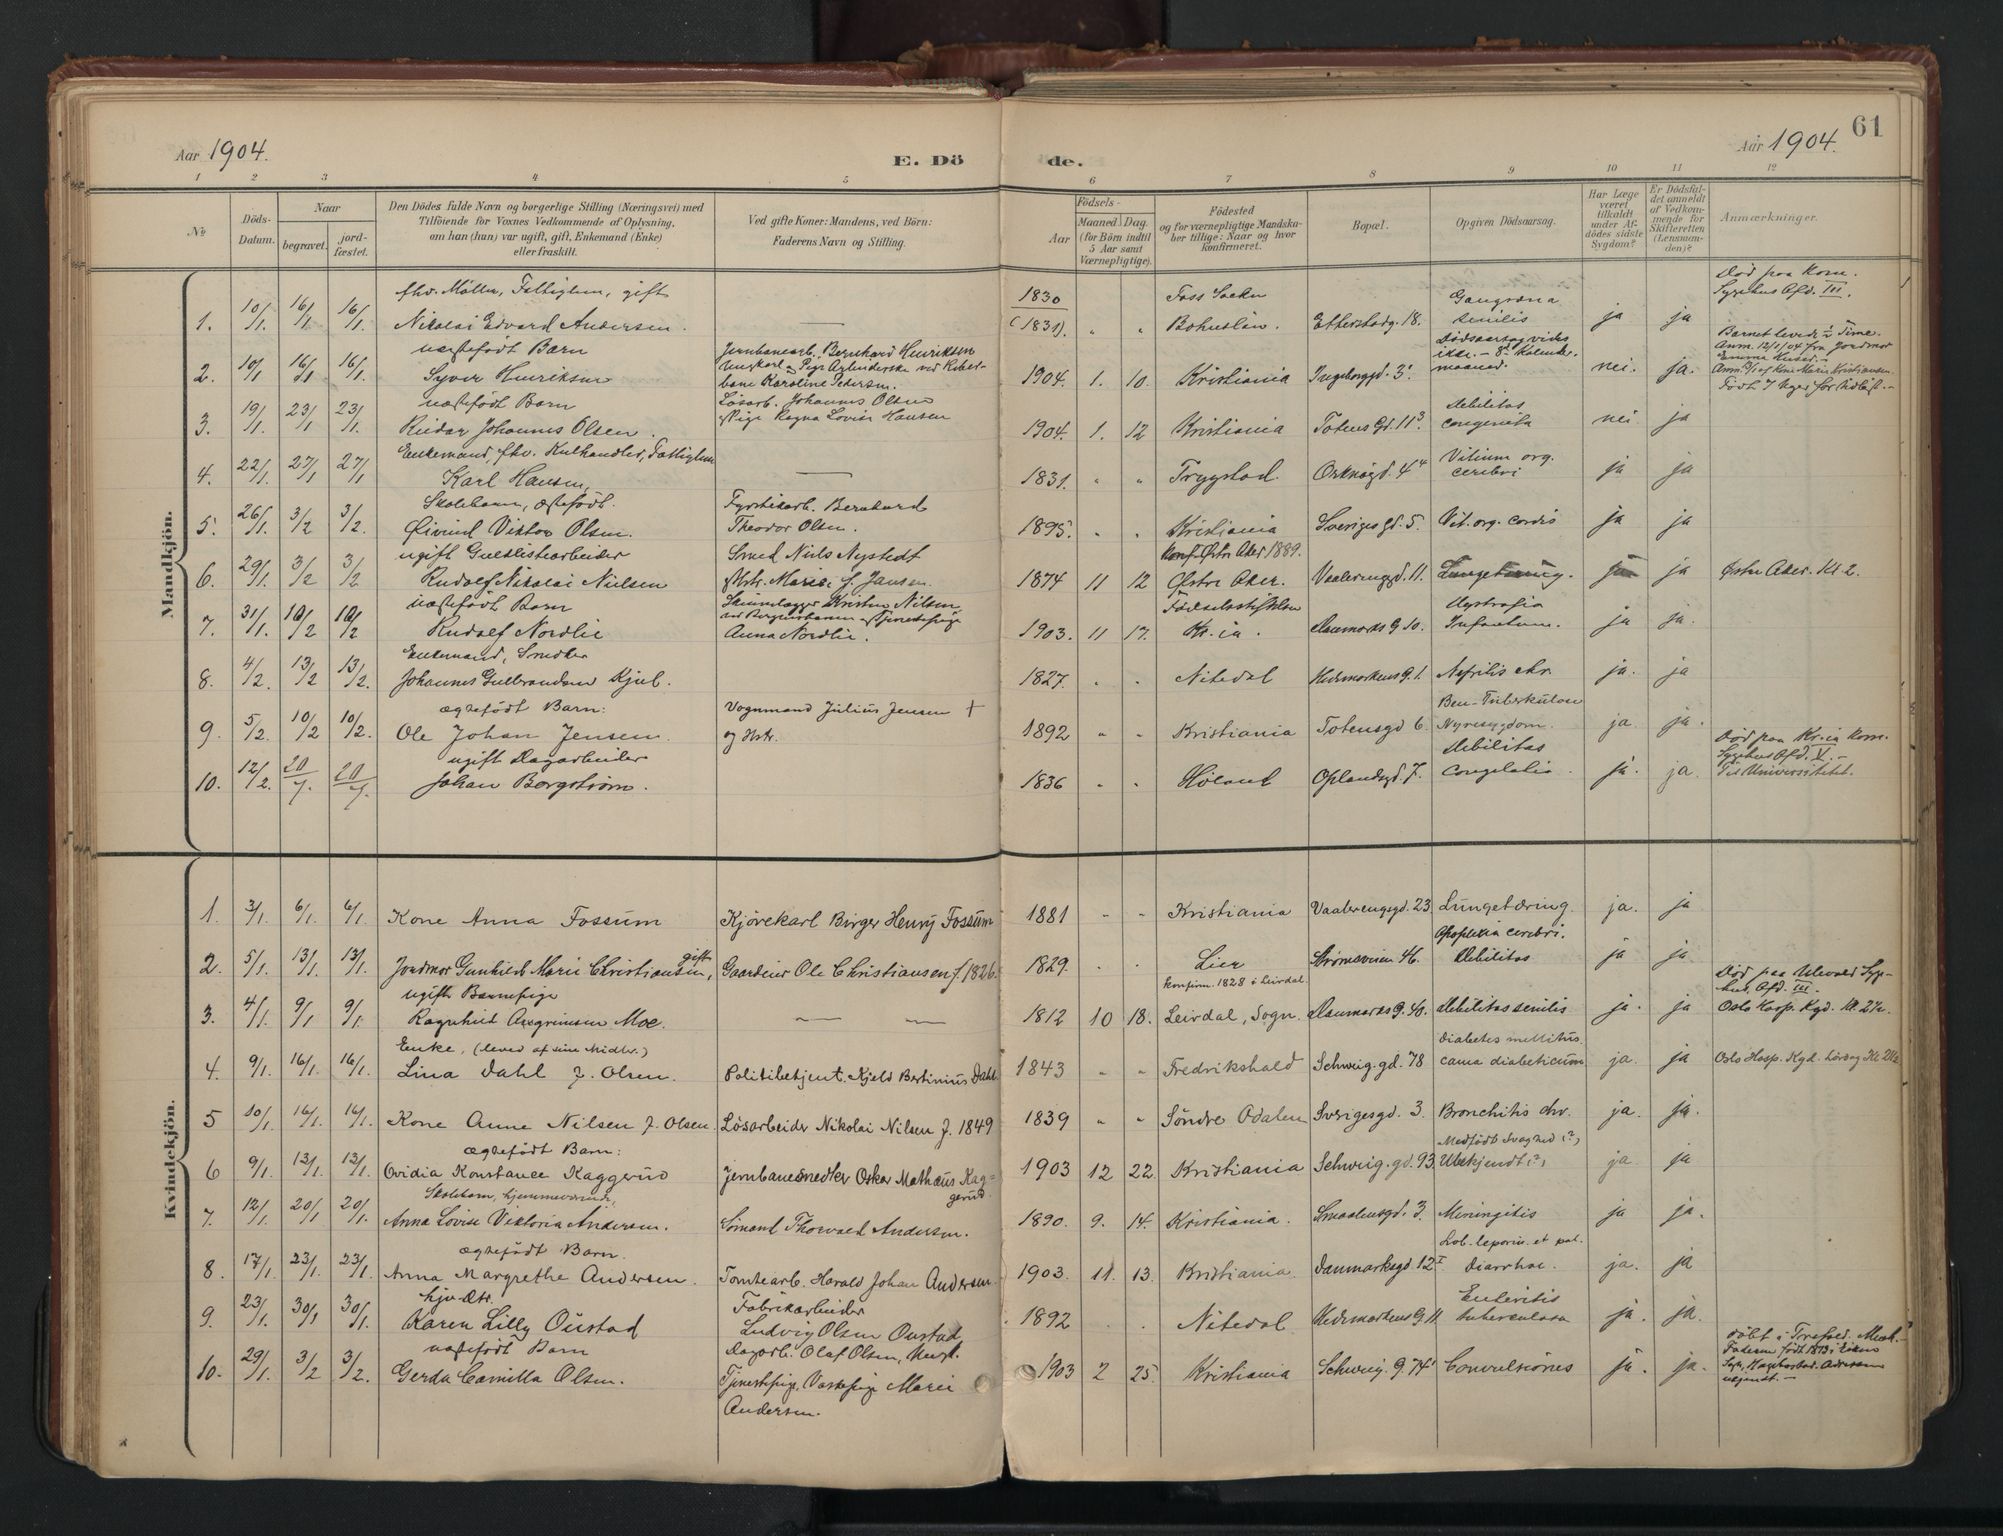 Aar 1904.
E. Dö
de.
Aar 1904.
61
1 2 3 4 5 6 7 8 9 10 11 12
№
Döds-Datum.
Naar
begravet.
jord-fæstet.
Den Dödes fulde Navn og borgerlige Stilling (Næringsvei) med
Tilföiende for Voxnes Vedkommende af Oplysning,
om han (hun) var ugift, gift, Enkemand (Enke)
eller fraskilt.
Ved gifte Koner: Mandens, ved Börn:
Faderens Navn og Stilling.
Födsels-
Aar
Maaned. Dag.
(for Börn indtil
5 Aar samt
Værnepligtige).
Födested
og for værnepligtige Mandska-
ber tillige: Naar og hvor
konfirmeret.
Bopæl.
Opgiven Dödsaarsag.
Har Læge
været
tilkaldt
under Af-
dödes sidste
Sygdom?
Er Dödsfal-
det anmeldt
af Vedkom-
mende for
Skifteretten
(Lensman-
den)?
Anmærkninger.
Mandkjön.
fhv. Møller, Fattiglem, gift 1830 Foss Sockn Gangræna Død paa Kom.
Sygehus Afd. III.
1. 10/1. 16/1 16/1. Nikolai Edvard Andersen. — (1831). " " Bohuslän. Etterstadg. 18. senilis ja ja
uægtefödt Barn Jernbanearb. Bernhard Henriksen Dödsaarsag vides
2. 10/1 16/1 16/1. Syver Henriksen 1904. 1. 10. Kristiania Ingeborggd. 3. maaned. nei. ja.
bane Karoline Pedersen.
uægtefödt Barn Løsarb. Johannes Olsen Debilitas
3. 19/1. 23/1 23/1. Reidar Johannes Olsen. Pige Ragna Lovise Hansen 1904. 1. 12 Kristiania Totens Gd. 11³ congenita nei. ja
Enkemand, fhv. Kulhandler, Fattiglem Vitium org.
4. 22/1. 27/1 27/1. Karl Hansen, — 1831. " " Trygstad. Orknøgd. 4⁴ cerebri ja ja
Skolebarn, ægtefödt. Fyrstikarb. Bernhard
5. 26/1. 3/2 3/2. Øivind Viktor Olsen. Theodor Olsen. 1895. " " Kristiania Sveriges Gd. 5. Vit. org. cordis ja ja
ugift Guldlistearbeider Smed Niels Nystedt Konf. Østre Aker 1889.
6. 29/1. 3/2 3/2 Rudolf Nikolai Nielsen Hstr. Marie f. Jansen. 1874 11 12 Østre Aker. Vaalerengd. 11. Lungetæring. ja ja Østre Aker. Kl 2.
uægtefödt Barn Kristen Nilsen Födselsstiftelsen Dystrofia
7. 31/1. 10/2 10/2 Rudolf Nordlie Anna Nordlie. 1903. 11 17. Kr.ia. Danmarks G 10. Infantum. ja ja.
Enkemand, Snedker
8. 4/2. 13/2 13/2. Johannes Gulbrandsen Kjul. 1827. " " Nitedal Hedemarkens G. 1. Nefritis chr. ja. ja
ægtefödt Barn: Vognmand Julius Jensen + Ben-Tuberkulose
9. 5/2. 10/2 10/2. Ole Johan Jensen. og Hstr. 1892 " " Kristiania Totensgd 6. Nyresygdom. ja. ja.
ugift Dagarbeider Debilitas Død paa Kr.ia Kom.
Sygehus Afd. V. –
10. 12/2. 20/4. 20/4. Johan Borgstrøm. 1836 " " Høland Oplandsgd. 7. Congelatio. ja. ja. Til Universitetet.
Kvindekjön.
1. 3/1. 6/1. 6/1. Kone Anna Fossum Kjørekarl Birger Henry Fossum 1881 " " Kristiania Vaalerengsgd. 23. Lungetæring. ja. ja
gift Apoplexia cerebri.
2. 5/1. 13/1. 13/1. Jordmor Gunhild Marie Christiansen, Gaardeier Ole Christiansen f 1826. 1829. " " Lier Strømsveien 46. Debilitas ja ja
ugift Barnepige Konfirm. 1828 i Leirdal. Død paa Ulevold Syge-
hus, Afd. III.
3. 4/1. 9/1. 9/1. Ragnhild Asgrimsen Moe. — — 1812 10 18. Leirdal, Sogn. Danmarks G. 40. Debilitas senilis ja. ja Oslo Hosp. Kgd. Kl. 2½.
Enke, (leved af sine Midler.) Diabetes mellitus.
4. 9/1. 16/1. 16/1. Lina Dahl f. Olsen. Politibetjent. Kjeld Bertinius Dahl 1843 " " Fredrikshald Schweig. gd. 78 coma diabeticum ja. ja Oslo Hosp. Kgd. Lørdag Kl. 2½
5 10/1. 16/1. 16/1. Kone Anne Nilsen f. Olsen. Løsarbeider Nikolai Nilsen f. 1849 1839 " " Søndre Odalen Sverigesgd. 3. Bronchitis chr. ja. ja.
ægtefödt Barn: Medfödt Svaghed (?)
6 9/1. 13/1. 13/1. Ovidia Konstance Kaggerud Jernbanesnedker Oskar Mathæus Kag-
gerud. 1903 12 22. Kristiania Schweig. gd. 93. Ubekjendt (?) ja. ja
Skolebarn, hjemmeværende,
7. 12/1. 20/1 20/1. Anna Lovise Viktoria Andersen. Sömand Thorvald Andersen. 1890. 9. 14. Kristiania. Smaalensgd. 3. Meningitis ja ja.
ægtefödt Barn. Lab. leporin. et pal.
8. 17/1. 23/1. 23/1. Anna Margrethe Andersen. Tomtearb. Harald Johan Andersen. 1903. 11. 13. Kristiania. Danmarksgd 12 I Diarrhoe. ja. ja
hjv. Dtr. Fabrikarbeider Enteritis
9. 23/1. 30/1. 30/1. Karen Lilly Oustad Ludvig Olsen Oustad. 1892 " " Nitedal Hedemarkens G. 11. tuberculosa ja. ja.
uægtefödt Barn Dagarb. Olaf Olsen, Døbt i Trefold. Menh.
Faderen født 1873 i Eidsv.
10. 29/1. 3/2. 3/2. Gerda Camilla Olsen. Tjenestepige, Vaskepige Marie 1903 2 25. Kristiania Schweig. G. 74¹ Convulsiones ja. ja.
Andersen.